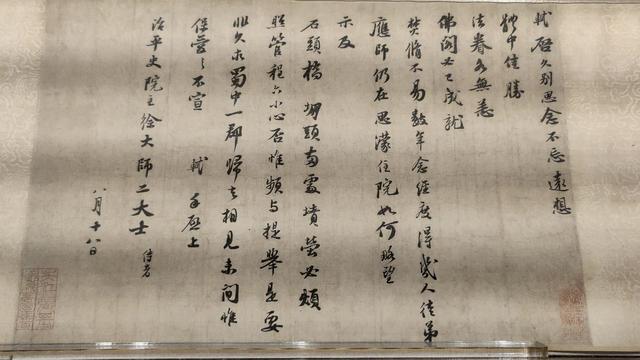 軾啓久別思念不忘遠想
體中佳勝
法眷各無恙
佛閣必已成就
焚脩不易數年念經度得幾人徒弟
應師仍在思濛住院如何略望
示及
石頭橋堋頭兩處墳塋必煩
照管程六小心否惟頻與提舉是要
非久求蜀中一郡歸去相見未間惟
保愛之不宣 軾手啟上
治平史院主徐大師二大士侍者
八月十八日